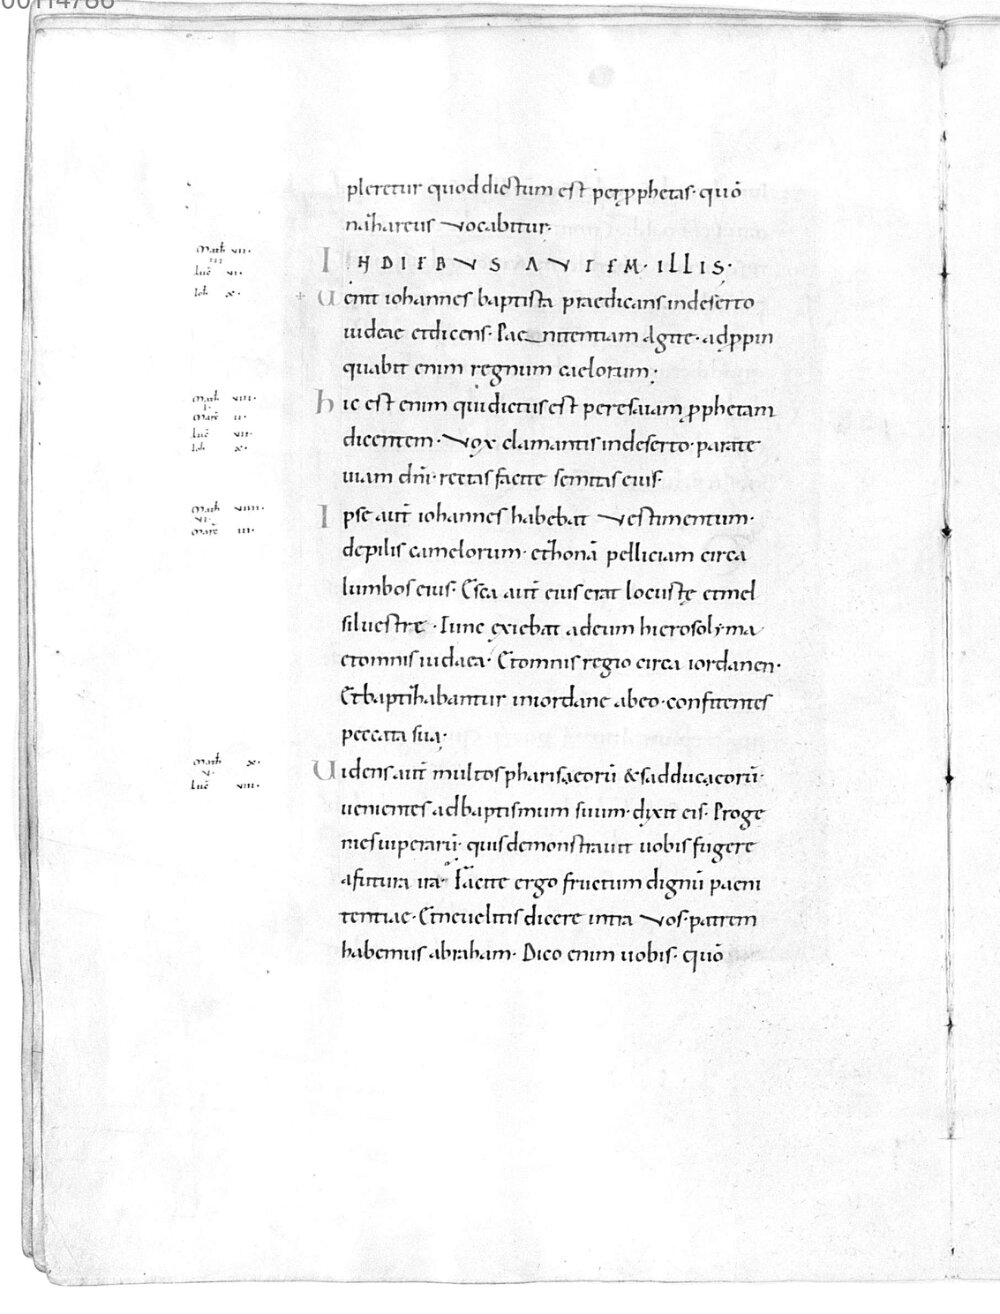 00114786
pleretur quod dictum est per ꝓphetas· quō
nazhareus vocabitur·
Math vii·
iii
Luc vi·
Ioh x·
IN DIEBVS AVTEM· ILLIS·
+ Uenit iohannes baptista praedicans in deserto
iudeae et dicens· Paenitentiam Agite· adꝓpin
quabit enim regnum caelorum;
Math viii·
i·
Marc ii·
Luc vii·
Ioh x·
hic est enim qui dictus est per esaiam ꝓphetam
dicentem· Vox clamantis in deserto· parate
uiam dn̄i· rectas facite semitas eius·
Math viiii·
vi·
Marc iii·
Ipse aut̄ iohannes habebat vestimentum·
de pilis camelorum· et zhonā pelliciam circa
lumbos eius· Esca aut̄ eius erat locustę et mel
siluestræ· Tunc exiebat ad eum hierosolyma
et omnis iudaea· Et omnis regio circa iordanen·
Et baptizhabantur in iordane ab eo· confitentes
peccata sua·
Math x·
v·
Luc viii·
Uidens aut̄ multos pharisæorū & sadducæorū·
uenientes ad baptismum suum· dixit eis· Proge
nies uiperarū· quis demonstrauit uobis fugere
a futura ira· Facite ergo fructum dignū paeni
tentiae· Et ne uelitis dicere intra vos· patrem
habemus abraham· Dico enim uobis· quō